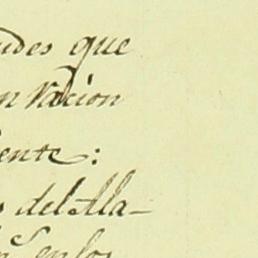 udes que
n vacion
ente:
s del Ala-
en los